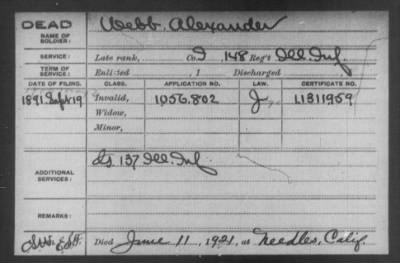 DEAD
NAME OF SOLDIER: Webb, Alexander
SERVICE: Late rank, Co. I, 148 Reg't Ill. Inf.
TERM OF SERVICE: Enlisted , 1 Discharged , 1
DATE OF FILING. CLASS. APPLICATION NO. LAW. CERTIFICATE NO.
1891 Sept 19 Invalid, 1056.802 J 1311959
Widow,
Minor,
ADDITIONAL SERVICES: D, 137 Ill. Inf
REMARKS:
Died June 11, 1921, at Needles, Calif.